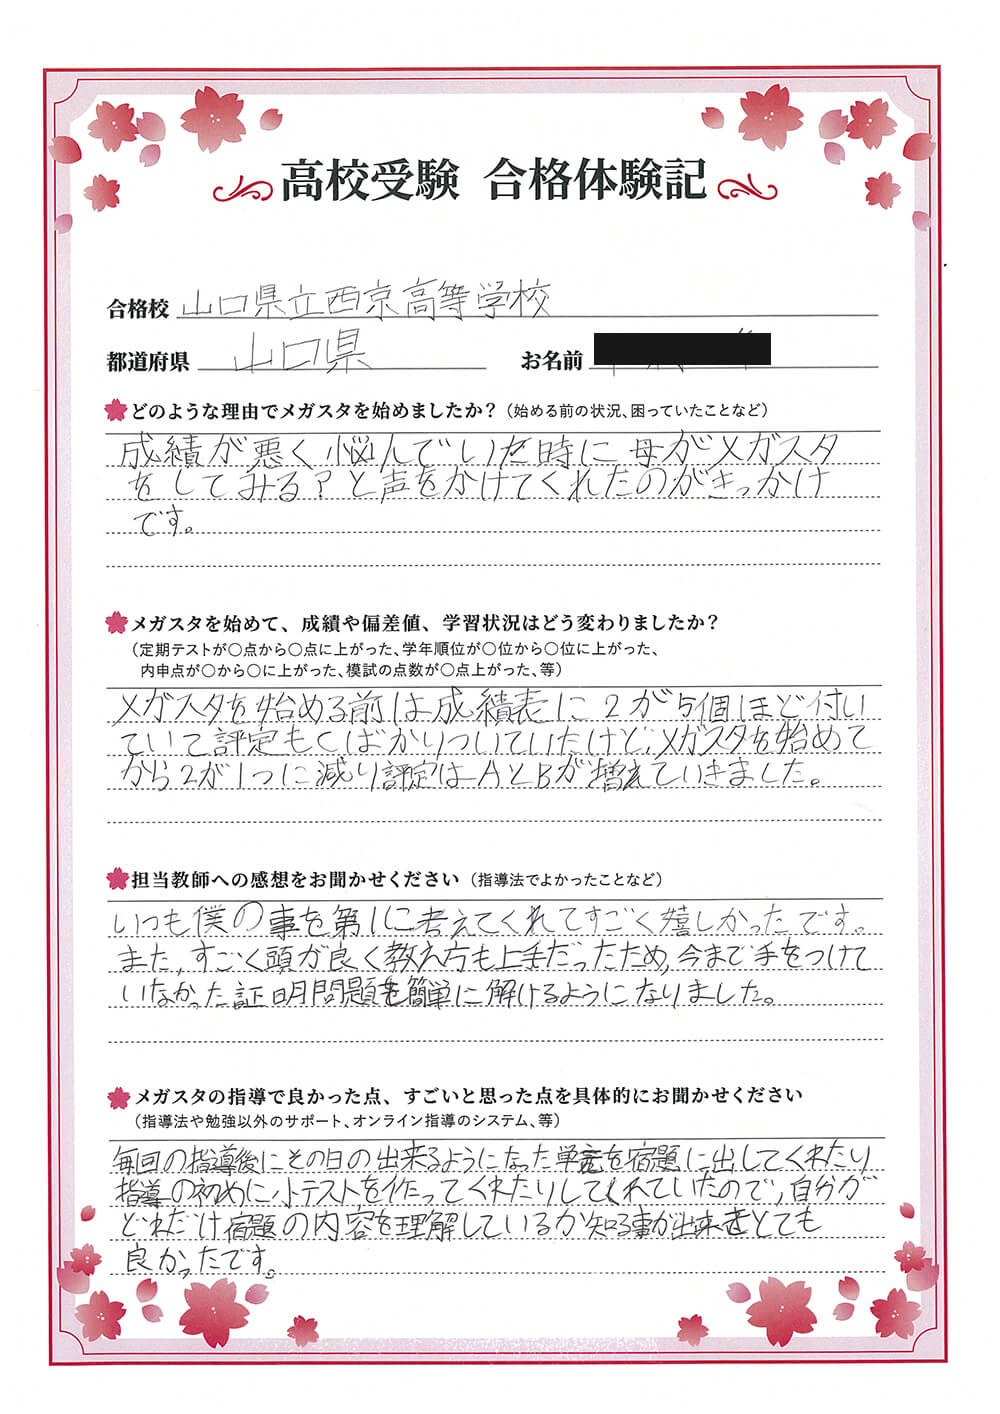 高校受験 合格体験記
合格校 山口県立西京高等学校
都道府県 山口県 お名前
どのような理由でメガスタを始めましたか?(始める前の状況、困っていたことなど)
成績が悪く悩んでいた時に母がメガスタ
をしてみる?と声をかけてくれたのがきっかけ
です。
メガスタを始めて、成績や偏差値、学習状況はどう変わりましたか?
(定期テストが〇点から〇点に上がった、学年順位が〇位から〇位に上がった、
内申点が〇から〇に上がった、模試の点数が〇点上がった、等)
メガスタを始める前は成績表に2が5個ほど付い
ていて評定もCばかりついていたけど、メガスタを始めて
から2が1つに減り評定はAとBが増えていきました。
担当教師への感想をお聞かせください(指導法でよかったことなど)
いつも僕の事を第1に考えてくれてすごく嬉しかったです。
また、すごく頭が良く教え方も上手だったため、今まで手をつけて
いなかった証明問題を簡単に解けるようになりました。
メガスタの指導で良かった点、すごいと思った点を具体的にお聞かせください
(指導法や勉強以外のサポート、オンライン指導のシステム、等)
毎回の指導後にその日の出来るようになった単元を宿題に出してくれたり
指導の初めに小テストを作ってくれたりしてくれていたので、自分が
どれだけ宿題の内容を理解しているか知る事が出来てとても
良かったです。